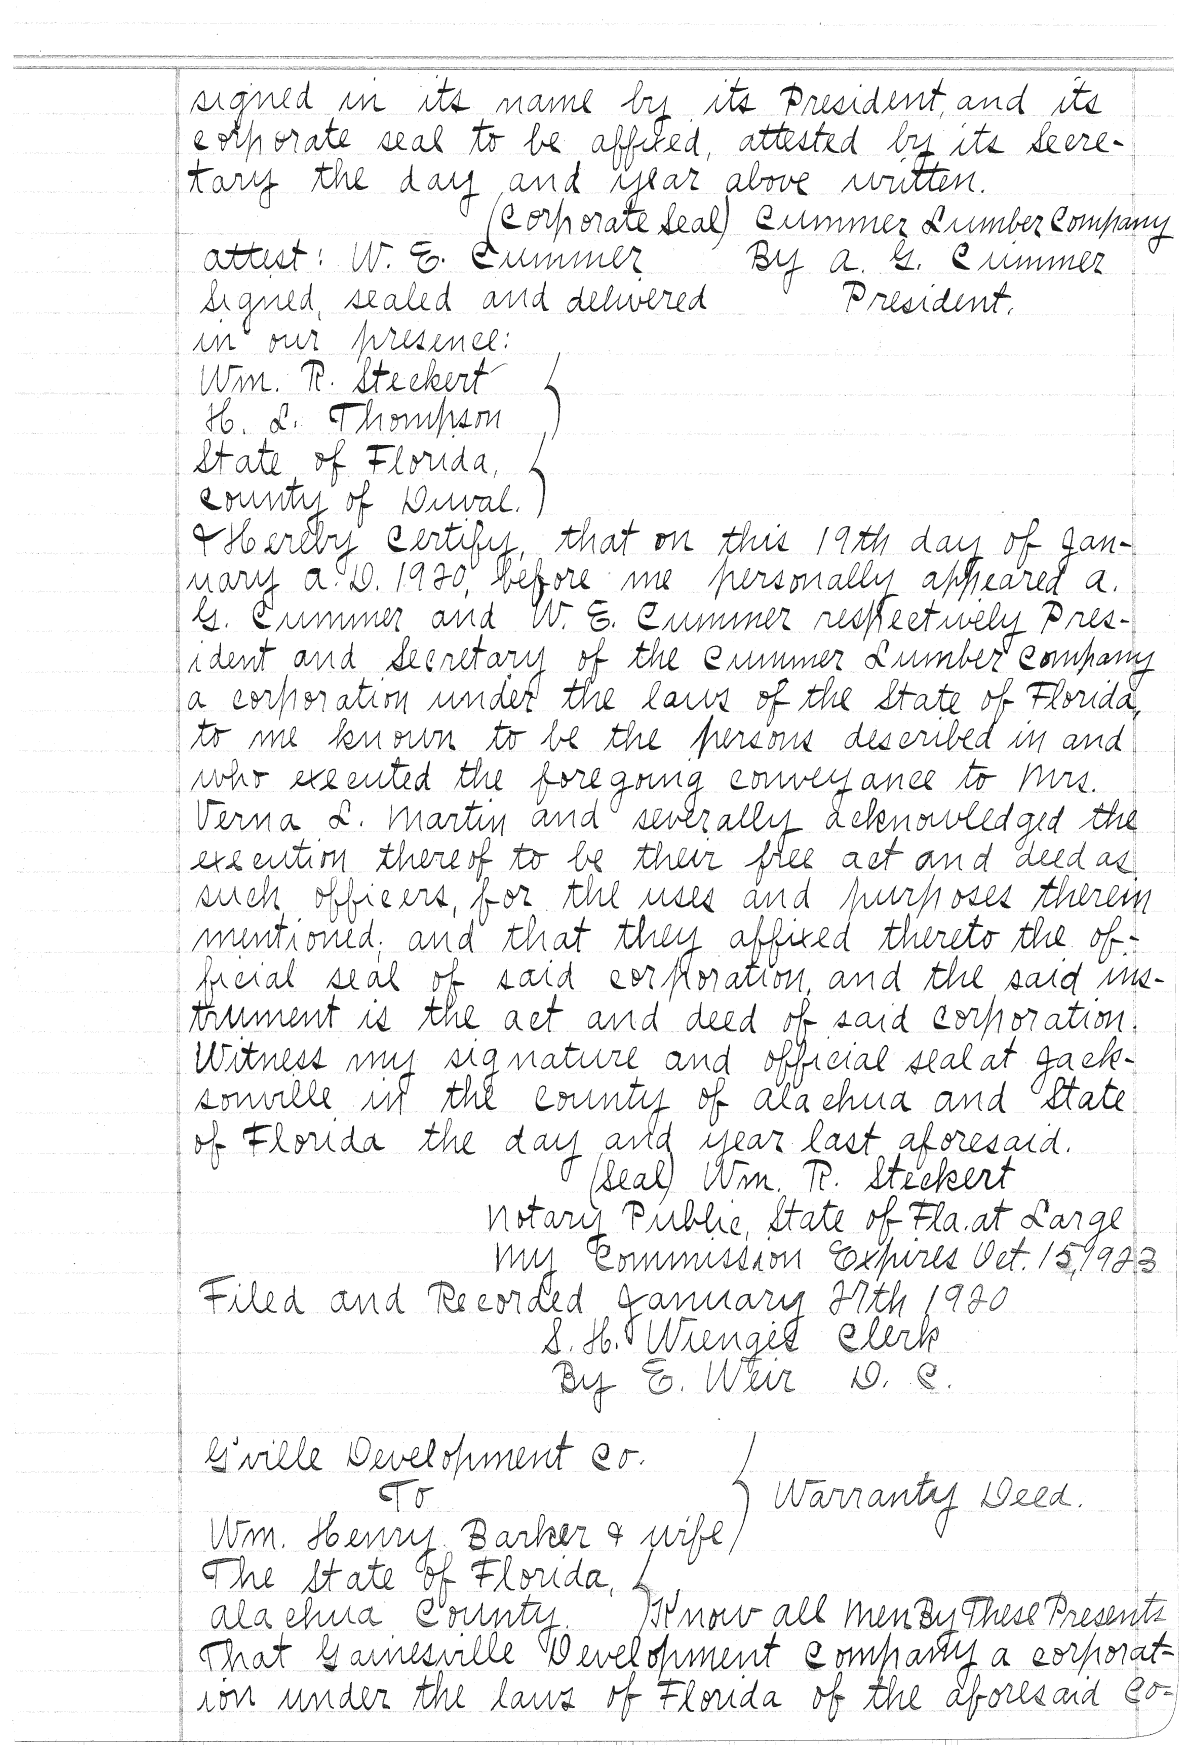 signed in its name by its President, and its
corporate seal to be affixed, attested by its Secre-
tary the day and year above written.
(Corporate Seal) Cummer Lumber Company
Attest: W. E. Cummer By A. G. Cummer
Signed, sealed and delivered President.
in our presence:
Wm. R. Steckert
H. L. Thompson
State of Florida,
County of Duval.
I Hereby Certify, that on this 19th day of Jan-
uary A. D. 1920, before me personally appeared A.
G. Cummer and W. E. Cummer respectively Pres-
ident and Secretary of the Cummer Lumber Company
a corporation under the laws of the State of Florida,
to me known to be the persons described in and
who executed the foregoing conveyance to Mrs.
Verna L. Martin and severally acknowledged the
execution thereof to be their free act and deed as
such officers, for the uses and purposes therein
mentioned; and that they affixed thereto the of-
ficial seal of said corporation, and the said ins-
trument is the act and deed of said corporation.
Witness my signature and official seal at Jack-
sonville in the County of Alachua and State
of Florida the day and year last aforesaid.
(Seal) Wm. R. Steckert
Notary Public, State of Fla. at Large
My Commission Expires Oct. 15, 1923
Filed and Recorded January 27th 1920
S. H. Wienges Clerk
By E. Weir D. C.
G'ville Development Co.
To Warranty Deed.
Wm. Henry Barker & wife
The State of Florida,
Alachua County. Know all Men By These Presents
That Gainesville Development Company a corporat-
ion under the laws of Florida of the aforesaid Co-